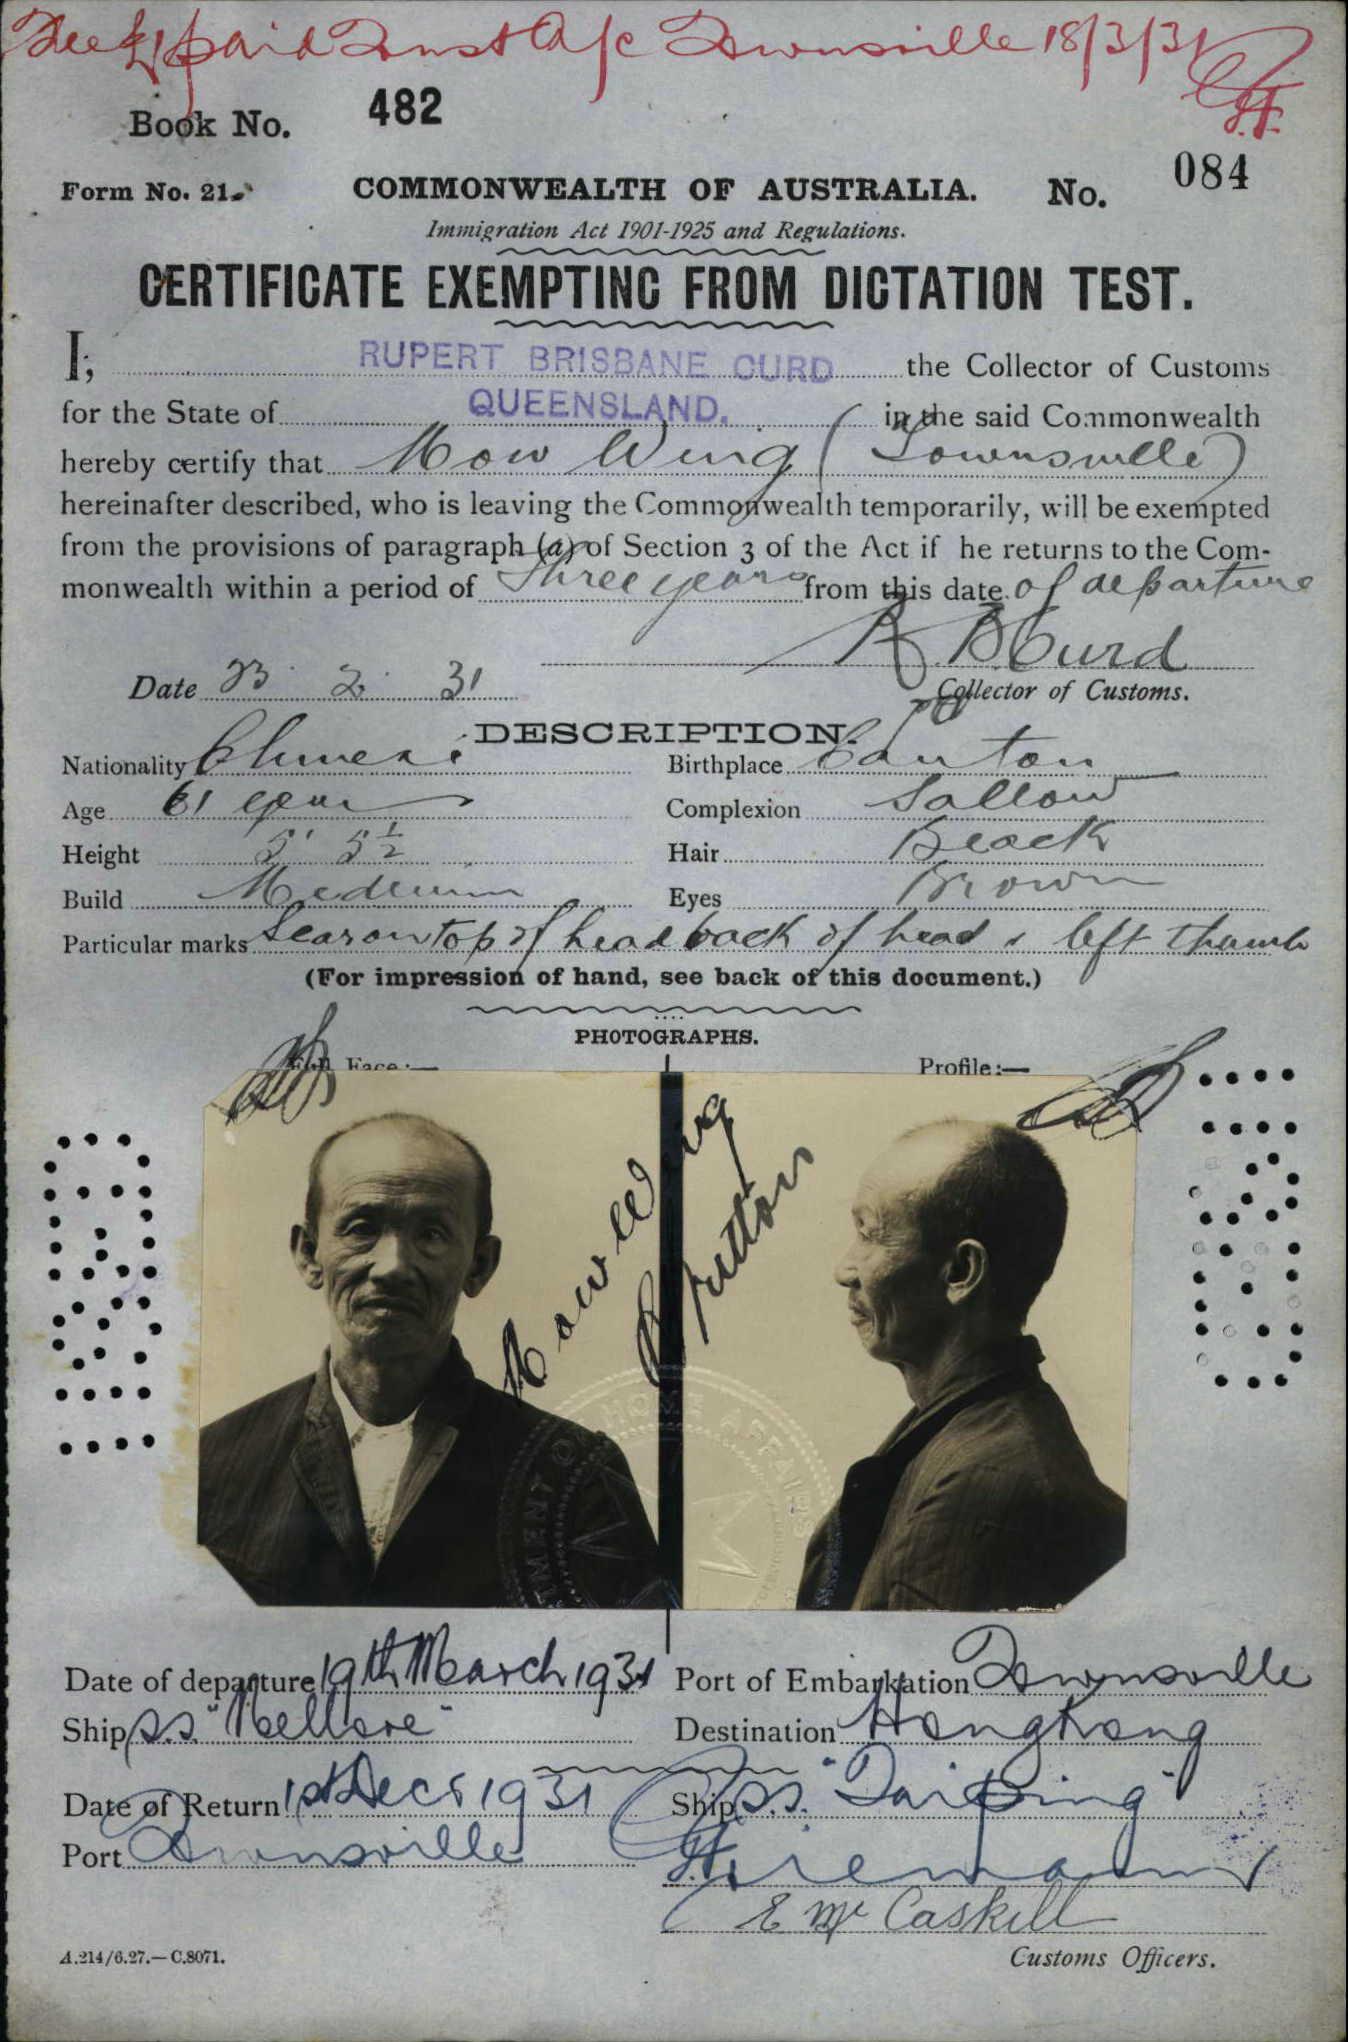 Fee £1 paid Trust A/c Townsville 18/3/31
Book No. 482
Form No. 21. COMMONWEALTH OF AUSTRALIA. No. 084
Immigration Act 1901-1925 and Regulations.
CERTIFICATE EXEMPTING FROM DICTATION TEST.
I, RUPERT BRISBANE CURD the Collector of Customs
for the State of QUEENSLAND. in the said Commonwealth
hereby certify that Mow Wing (Townsville)
hereinafter described, who is leaving the Commonwealth temporarily, will be exempted
from the provisions of paragraph (a) of Section 3 of the Act if he returns to the Com-
monwealth within a period of three years from this date of departure
R B Curd
Date 23 2 31 Collector of Customs.
DESCRIPTION.
Nationality Chinese Birthplace Canton
Age 61 years Complexion Sallow
Height 5' 5½ Hair Black
Build Medium Eyes Brown
Particular marks Scar on top of head back of head & left thumb
(For impression of hand, see back of this document.)
PHOTOGRAPHS.
Full Face:— Profile:—
Mow Wing
HOME AFFAIRS
Date of departure 19th March 1931 Port of Embarkation Townsville
Ship s.s. "Nellore" Destination HongKong
Date of Return 1st Decr 1931 Ship s.s. "Taiping"
Port Townsville
E McCaskill
A.214/6.27.—C.8071. Customs Officers.